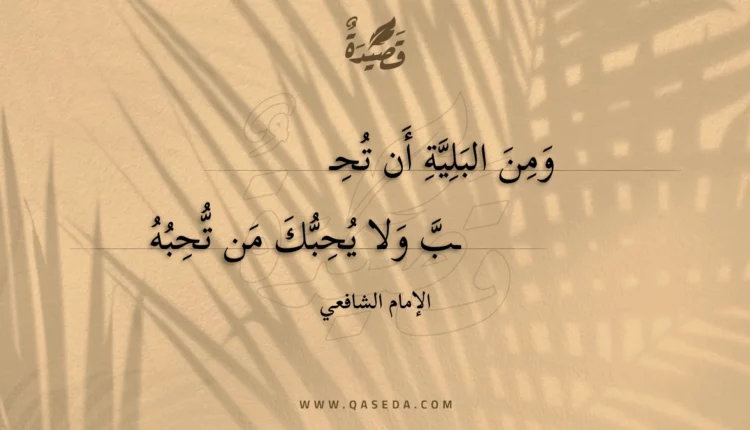 قَصِيْدَةٌ
وَمِنَ البَلِيَّةِ أَن تُحِـ
ـبَّ وَلا يُحِبُّكَ مَن تُّحِبُهُ
الإمام الشافعي
WWW.QASEDA.COM